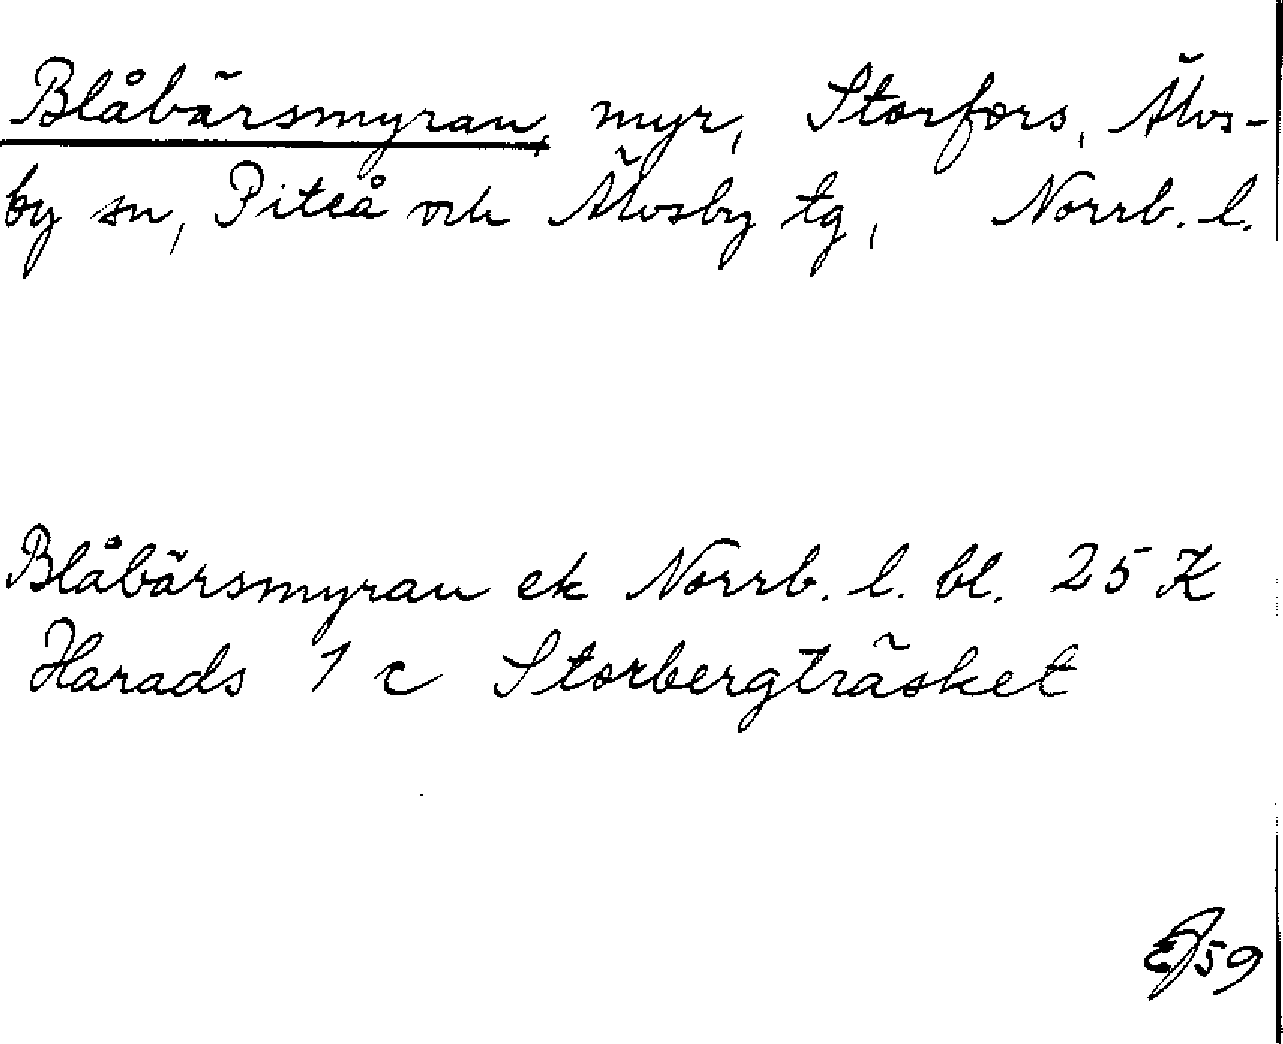 Blåbärsmyran, myr, Storfors, Älvs-
by sn, Piteå och Älvsby tg, Norrb. l.
Blåbärsmyran ek Norrb. l. bl. 25 K
Harads 1 c Storbergträsket
59